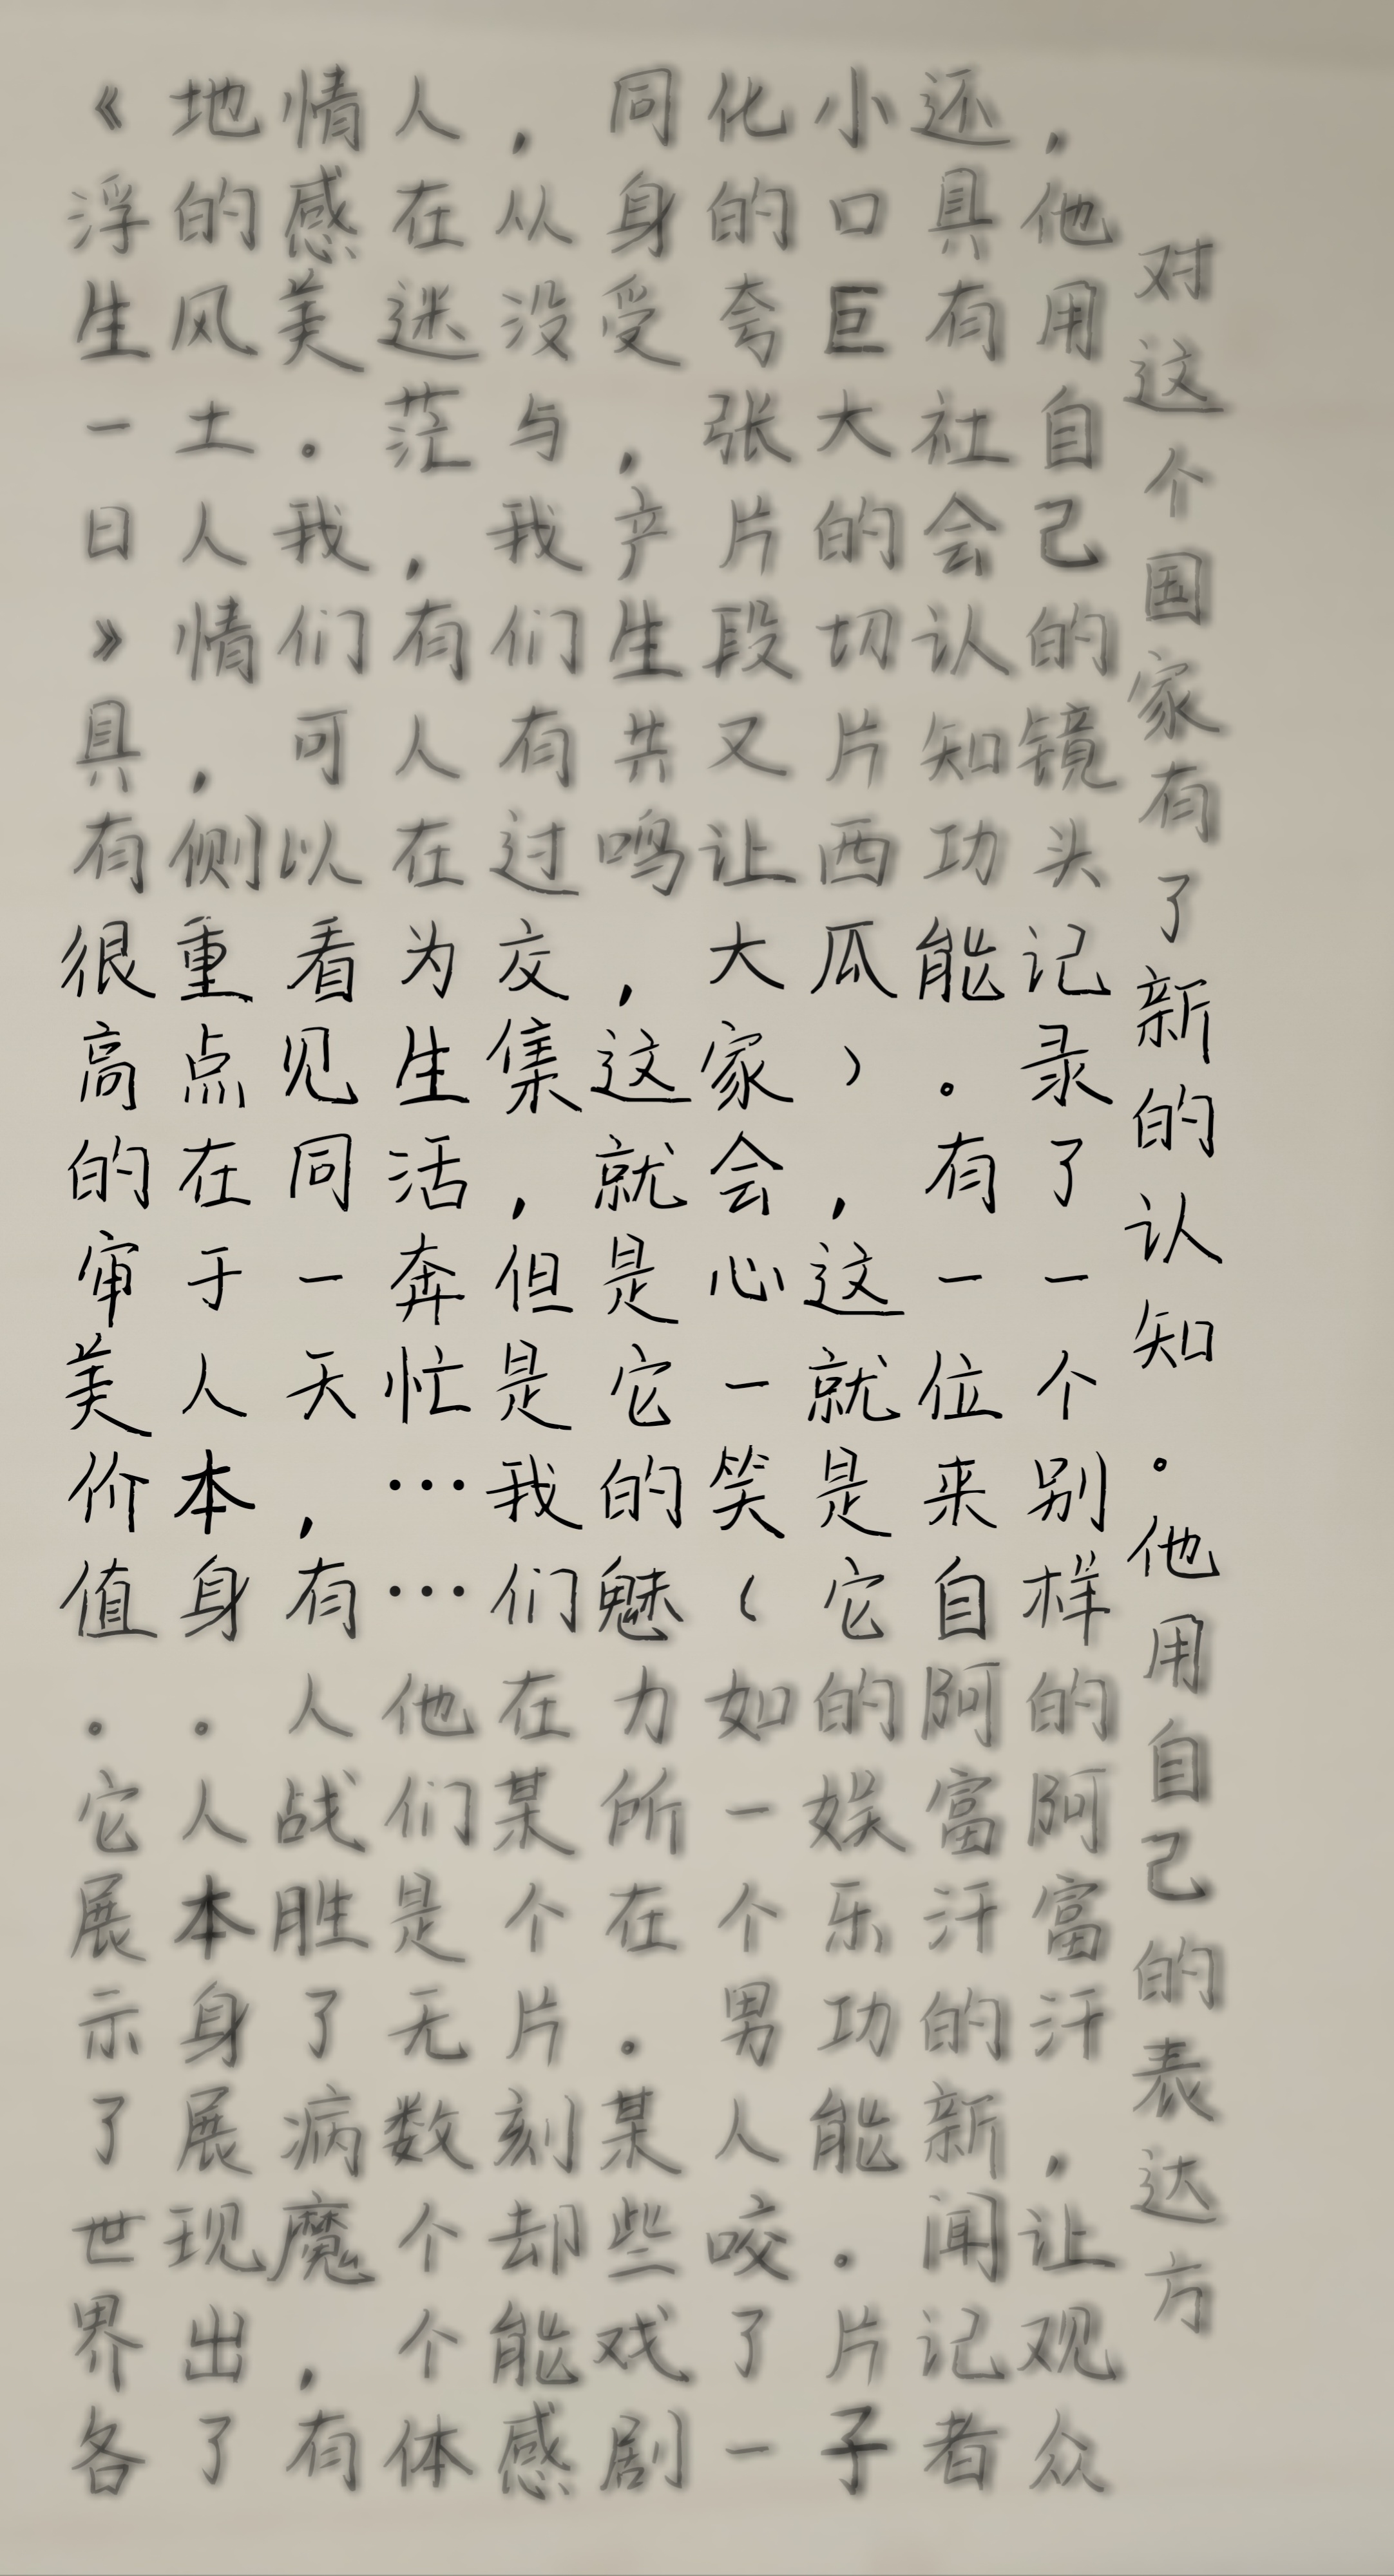 《浮生一日》具有很高的审美价值。它展示了世界各
地的风土人情，侧重点在于人本身。人本身展现出了
情感美。我们可以看见同一天，有人战胜了病魔，有
人在迷茫，有人在为生活奔忙……他们是无数个个体
，从没与我们有过交集，但是我们在某个片刻却能感
同身受，产生共鸣，这就是它的魅力所在。某些戏剧
化的夸张片段又让大家会心一笑（如一个男人咬了一
小口巨大的切片西瓜），这就是它的娱乐功能。片子
还具有社会认知功能。有一位来自阿富汗的新闻记者
，他用自己的镜头记录了一个别样的阿富汗，让观众
对这个国家有了新的认知。他用自己的表达方